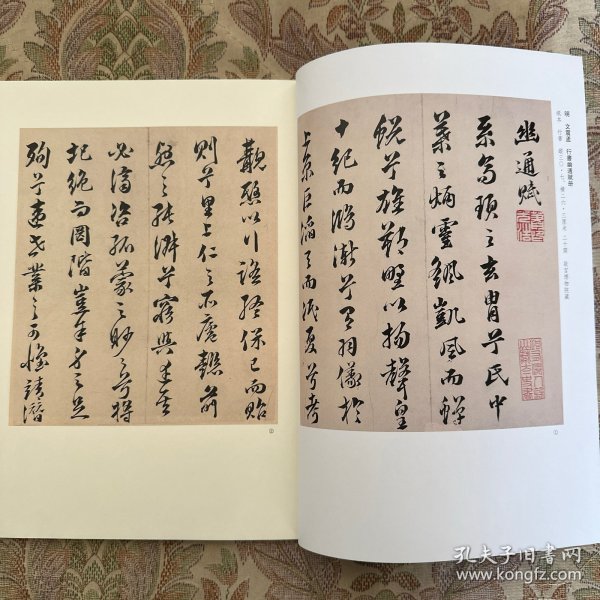 明 文震孟 行書幽通賦册
紙本 行書 縱三〇·七、橫二六·三厘米 二十開 故宮博物院藏
幽通賦
系高頊之玄冑兮氏中
葉之炳靈飊凱風而蟬
蛻兮雄朔野以揚聲皇
十紀而鴻漸兮有羽儀於
上京巨滔天而泯夏兮考
①
遘愍以行謠終保己而貽
則兮里上仁之所廬懿前
烈之純淑兮窮與達其
必濟咨孤蒙之眇々兮將
圮絕而罔階豈余身之足
殉兮違世業之可懷靖潛
②
孔夫子旧书网
www.kongfz.com